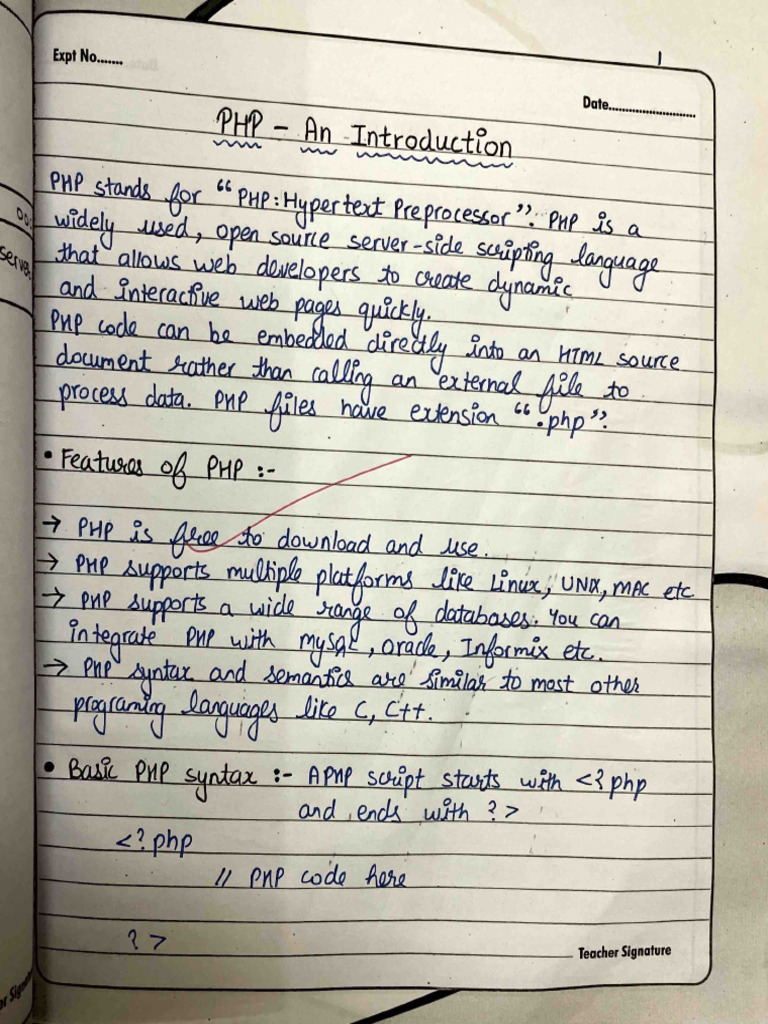 1
Expt No.......
Date.........................
PHP - An Introduction
PHP stands for "PHP: Hypertext Preprocessor". PHP is a
widely used, open source server-side scripting language
that allows web developers to create dynamic
and interactive web pages quickly.
PHP code can be embedded directly into an HTML source
document rather than calling an external file to
process data. PHP files have extension ".php".
• Features of PHP :-
→ PHP is free to download and use.
→ PHP supports multiple platforms like Linux, UNIX, MAC etc
→ PHP supports a wide range of databases. You can
integrate PHP with mySQL, oracle, Informix etc.
→ PHP syntax and semantics are similar to most other
programing languages like C, C++.
• Basic PHP syntax :- A PHP script starts with <?php
and ends with ?>
<?php
// PHP code here
?>
Teacher Signature